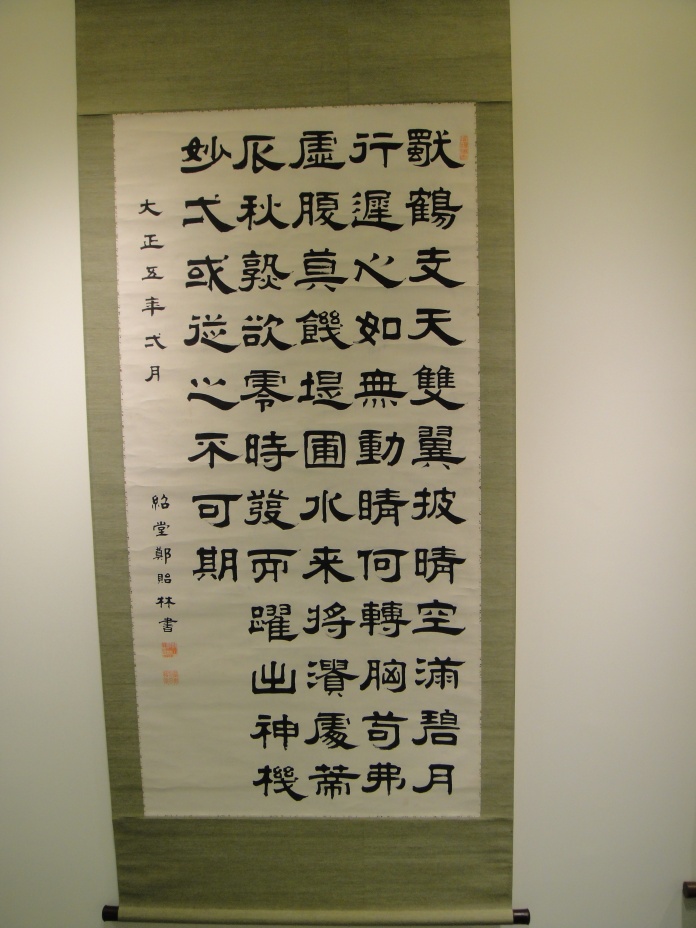 獸鶴支天雙翼披晴空滿碧月
行遲心如無動睛何轉胸苟弗
虛腹莫饑堤圃水来將潰處蒂
辰秋孰欲零時發而躍出神機
妙弍或從心不可期
大正五年弍月
紹堂鄭貽林書